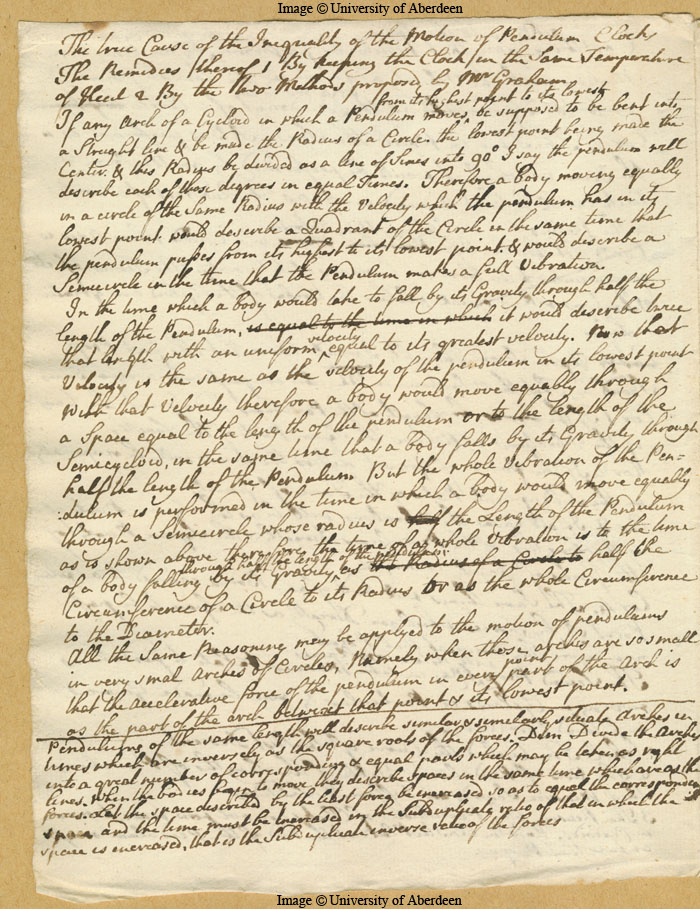 Image © University of Aberdeen
The true Cause of the Inequality of the Motion of Pendulum Clocks
The Remidies thereof 1 By keeping the Clock in the Same Temperature
of Heat 2 By the two Methods proposed by Mr Graham
from its highest point to its lowest
If any Arch of a Cycloid in which a Pendulum moves, be supposed to be bent into
a Straight line & be made the Radius of a Circle. the lowest point being made the
Center. & this Radius be divided as a line of Sines into 90° I say the pendulum will
describe each of those degrees in equal Times. Therefore a Body moving equally
in a circle of the Same Radius with the Velocity which the pendulum has in its
lowest point would describe a Quadrant of the Circle in the same time that
the pendulum passes from its highest to its lowest point. & would describe a
Semicircle in the time that the Pendulum makes a full Vibration.
In the time which a body would take to fall by its Gravity through half the
length of the Pendulum, is equal to the time in which it would describe twice
velocity
that length with an uniform equal to its greatest velocity. Now that
Velocity is the same as the velocity of the pendulum in its lowest point
With that Velocity therefore a body would move equably through
a Space equal to the length of the pendulum or to the length of the
Semicycloid, in the same time that a body falls by its Gravity through
half the length of the Pendulum. But the whole Vibration of the Pen=
:dulum is performed in the time in which a Body would move equally
through a Semicircle whose radius is half the Length of the Pendulum
as is shown above therefore the time of a whole Vibration is to the time
through half the length of the pendulum
of a body falling by its gravity, as the Radius of a Circle to half the
Circumference of a Circle to its Radius Or as the whole Circumference
to the Diameter.
All the Same Reasoning may be applied to the motion of pendulums
in very small Arches of Circles, Namely when these arches are so small
point
that the accelerative force of the pendulum in every part of the Arch is
as the part of the arch betwixt that point & its lowest point.
Pendulums of the same length will describe similar & similarly situate Arches in
times which are inversely as the square roots of the forces. Dem. Divide the Arches
into a great number of corresponding & equal parts which may be taken as right
lines. When the bodies begin to move they describe spaces in the same time which are as the
forces. Let the space described by the least force be increased so as to equal the corresponding
space and the time must be increased in the Subduplicate ratio of that in which the
space is increased, that is the Subduplicate inverse ratio of the forces
Image © University of Aberdeen